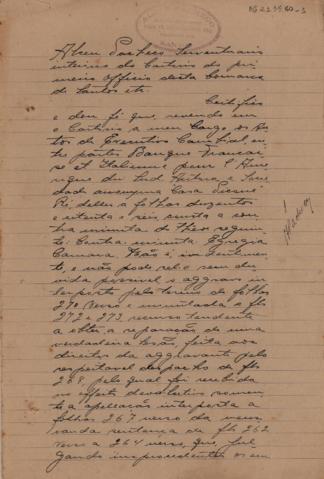 Alceu Pacheco Serventuario
interino do Cartorio do pri
meiro officio desta Comarca
de Santos etc
Certifico
e dou fé que, revendo em
o Cartorio a meu Cargo, os Au
tos de Executivo Cambial, en
tre partes Banque Française
et Italienne pour l'Amé
rique du Sud, e So
ciedade anonyma Casa
delles a folhas duzentos
e oitenta e seis consta a con
tra minuta do theor seguin
te: Contra minuta Egregia
Camara.
te, e não pode ser sem du
vida o aggravo in
terposto pelo termo de folhas
270 verso e minutado a fls
272 a 273 recurso tendente
a obter a reparação de uma
verdadeira lesão feita aos
direitos da aggravante pelo
respeitavel despacho de fls
268, pelo qual foi recebida
no effeito devolutivo somen
te a appellação interposta a
folhas 267 verso da vene
randa sentença de fls 262
verso a 264 verso, que, jul
gando improcedentes os em